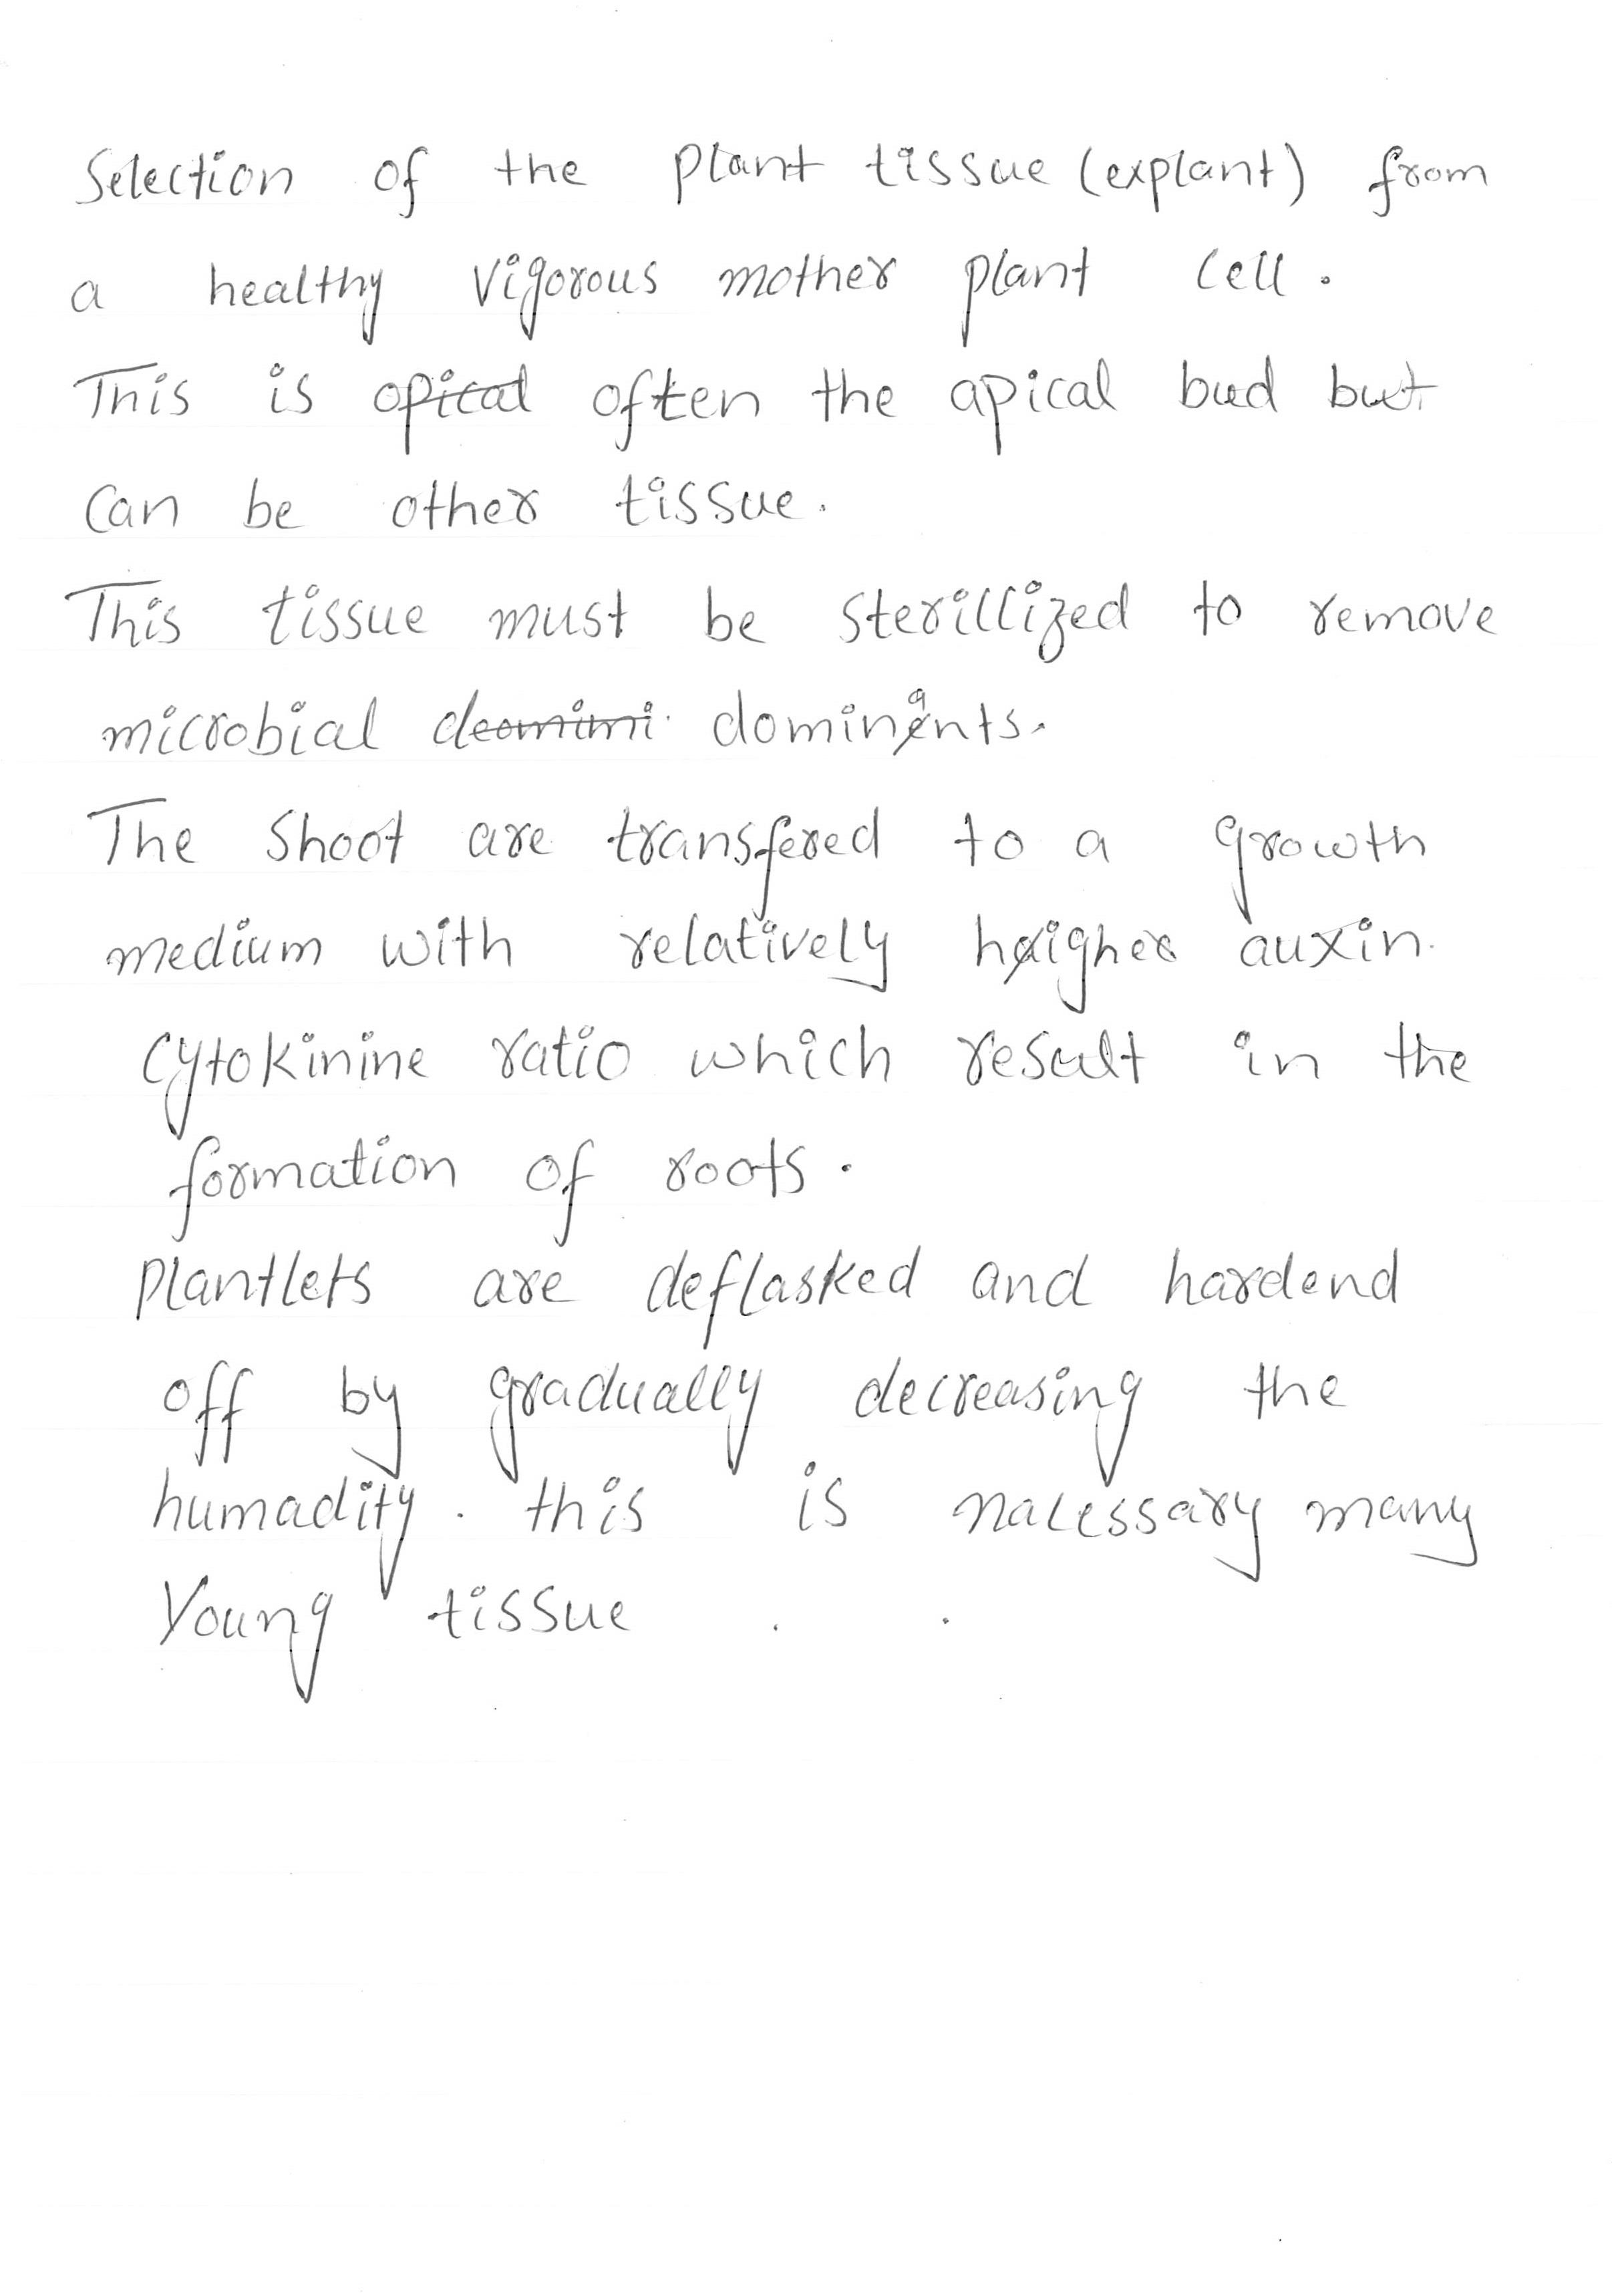 Selection of the plant tissue (explant) from
a healthy vigorous mother plant cell.
This is opical often the apical bud but
can be other tissue.
This tissue must be sterillized to remove
microbial deomimi dominants.
The shoot are transfered to a growth
medium with relatively higher auxin.
cytokinine ratio which result in the
formation of roots.
plantlets are deflasked and hardend
off by gradually decreasing the
humadity. this is nacessary many
young tissue